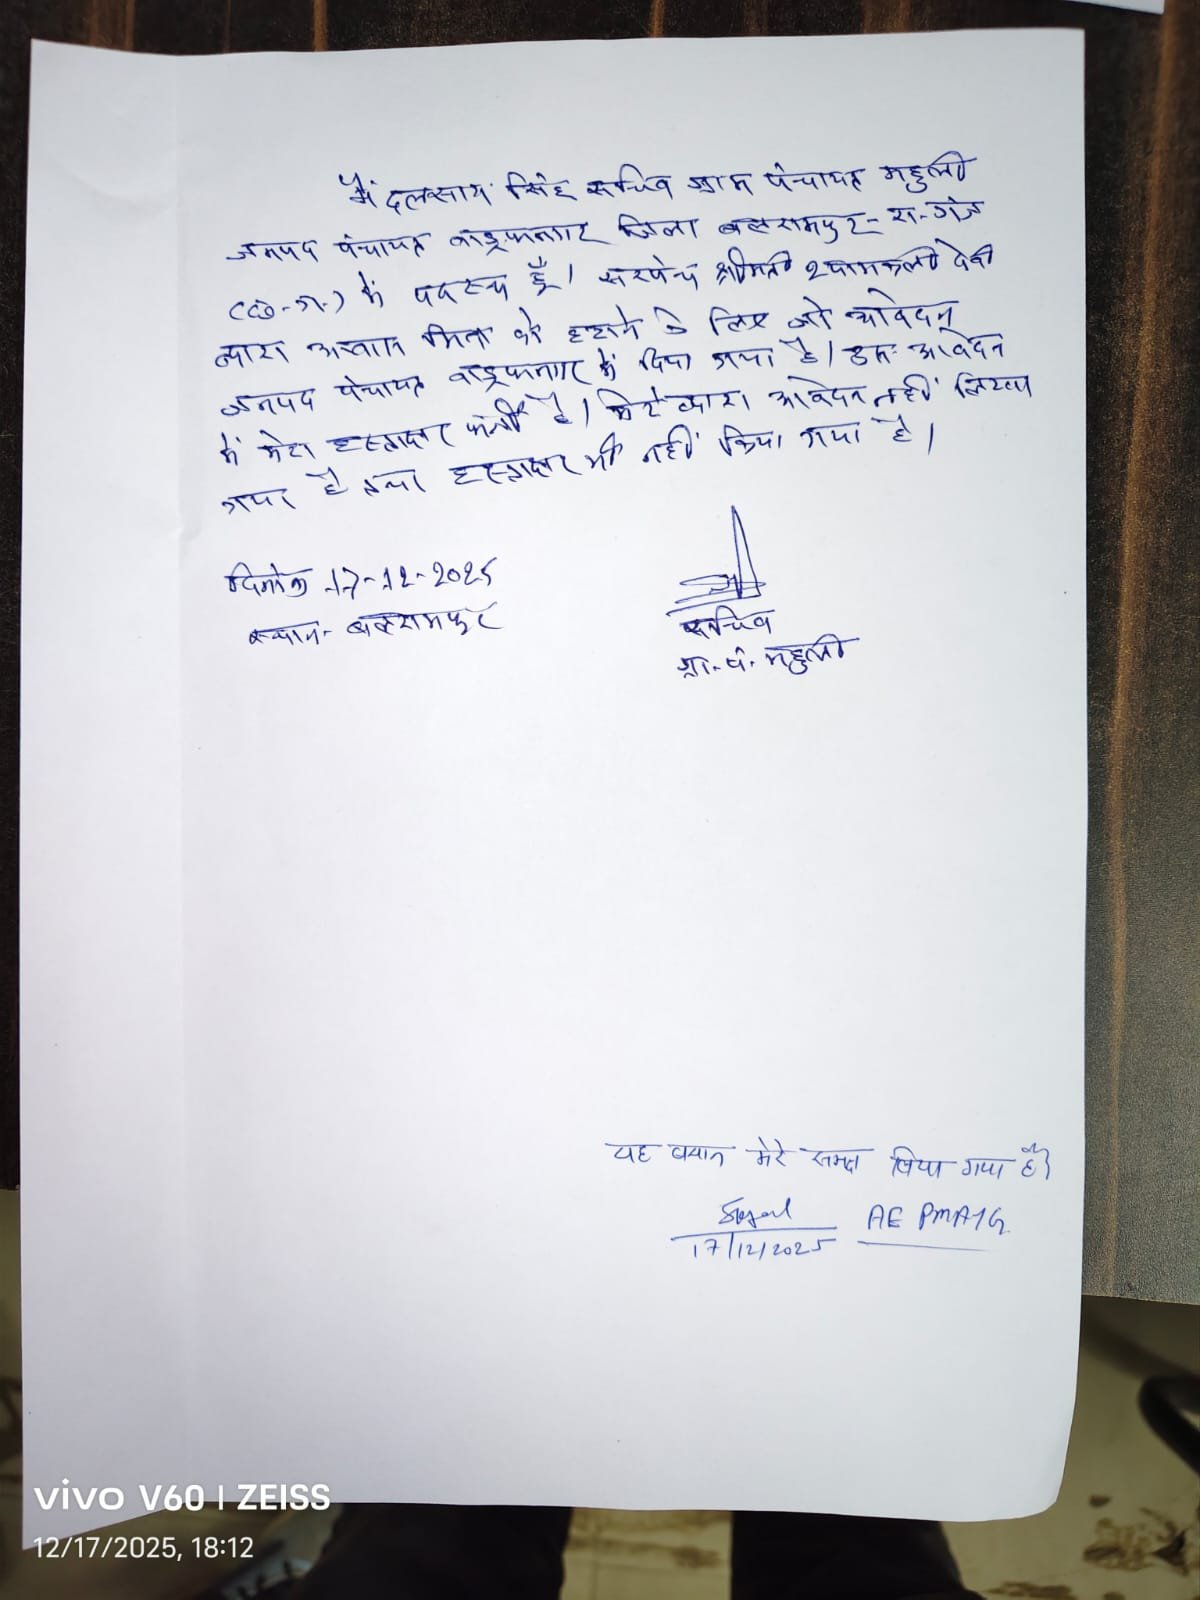 मैं दलसाय सिंह सचिव ग्राम पंचायत महुली
जनपद पंचायत वाड्रफनगर जिला बलरामपुर-रा-गंज
(छ-ग-) में पदस्थ हूँ। सरपंच श्रीमती श्यामकली देवी
द्वारा आवास मित्र को हटाने के लिए जो आवेदन
जनपद पंचायत वाड्रफनगर में दिया गया है। उक्त आवेदन
में मेरा हस्ताक्षर फर्जी है। मेरे द्वारा आवेदन नहीं लिखा
गया है तथा हस्ताक्षर भी नहीं किया गया है।
दिनांक 17-12-2025
स्थान- बलरामपुर
सचिव
ग्रा. पं. महुली
यह बयान मेरे समक्ष लिया गया है।
17/12/2025 AE PMAYG
vivo V60 | ZEISS
12/17/2025, 18:12